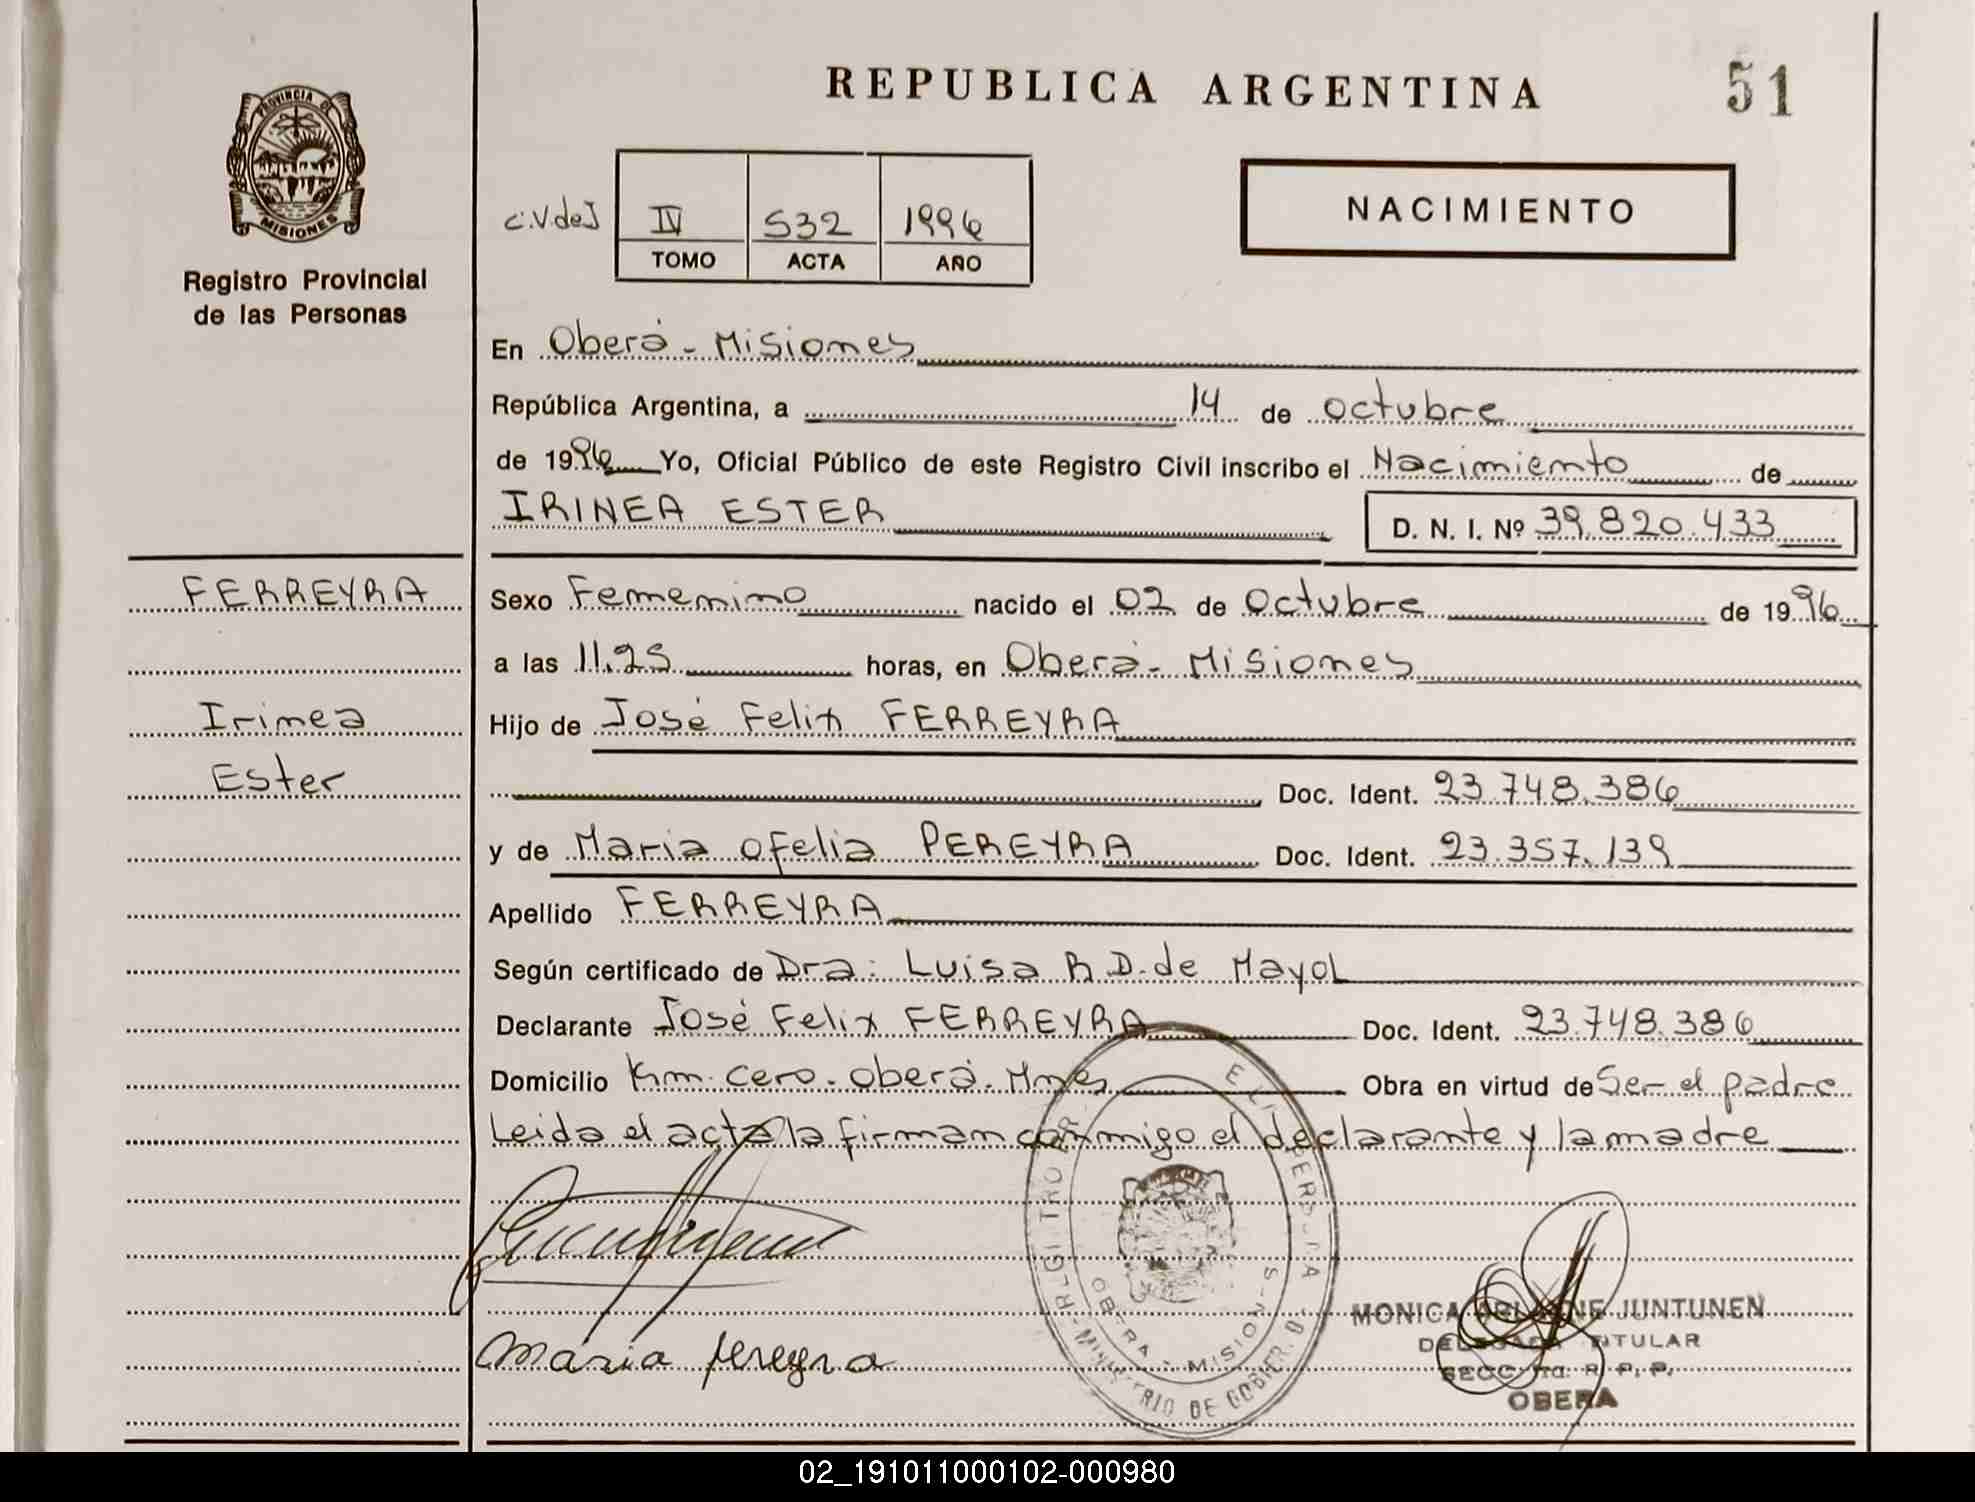 REPUBLICA ARGENTINA
51
PROVINCIA DE
MISIONES
Registro Provincial
de las Personas
C.V de J
IV 532 1996
TOMO ACTA AÑO
NACIMIENTO
En Oberá - Misiones
República Argentina, a 14 de octubre
de 1996 Yo, Oficial Público de este Registro Civil inscribo el Nacimiento de
IRINEA ESTER
D. N. I. Nº 39.820.433
FERREYRA
Irinea
Ester
Sexo Femenino nacido el 02 de Octubre de 1996
a las 11.25 horas, en Oberá - Misiones
Hijo de José Felix FERREYRA
Doc. Ident. 23.748.386
y de Maria Ofelia PEREYRA Doc. Ident. 23.357.139
Apellido FERREYRA
Según certificado de Dra: Luisa R.D. de Mayol
Declarante José Felix FERREYRA Doc. Ident. 23.748.386
Domicilio Km. Cero. Oberá. Mnes Obra en virtud de Ser el padre
Leida el acta la firman conmigo el declarante y la madre
Maria Pereyra
MINISTERIO DE GOBIER
MISIONES
MONICA JUNTUNEN
TITULAR
SECC R. P. P.
OBERA
02_191011000102-000980